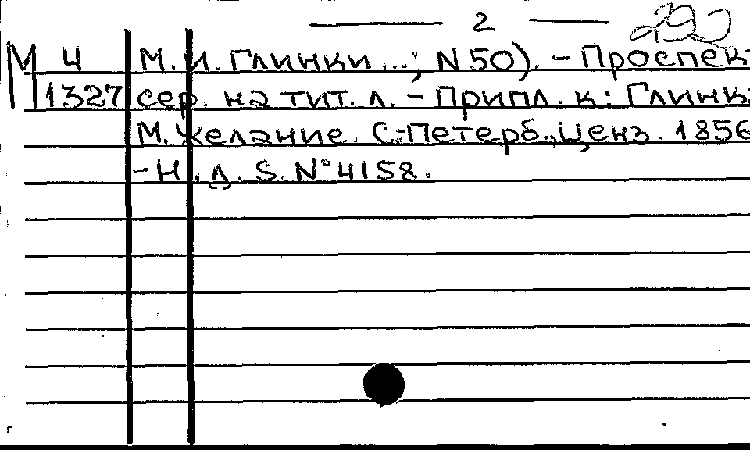 — 2 —
М 4 М. И. Глинки...; N 50). – Проспек
1327 сер. на тит. л. – Припл. к: Глинк
М. Желание. С-Петерб., Ценз. 1856
– Н. д. S. N° 4158.